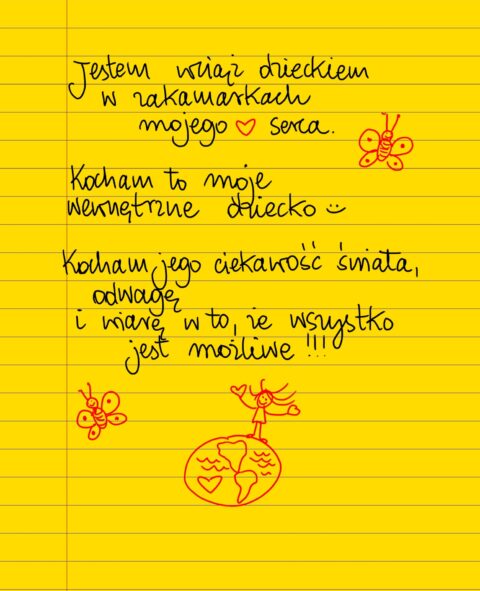 Jestem wciąż dzieckiem
w zakamarkach
mojego ♡ serca.
Kocham to moje
wewnętrzne dziecko :)
Kocham jego ciekawość świata,
odwagę
i wiarę w to, że wszystko
jest możliwe !!!